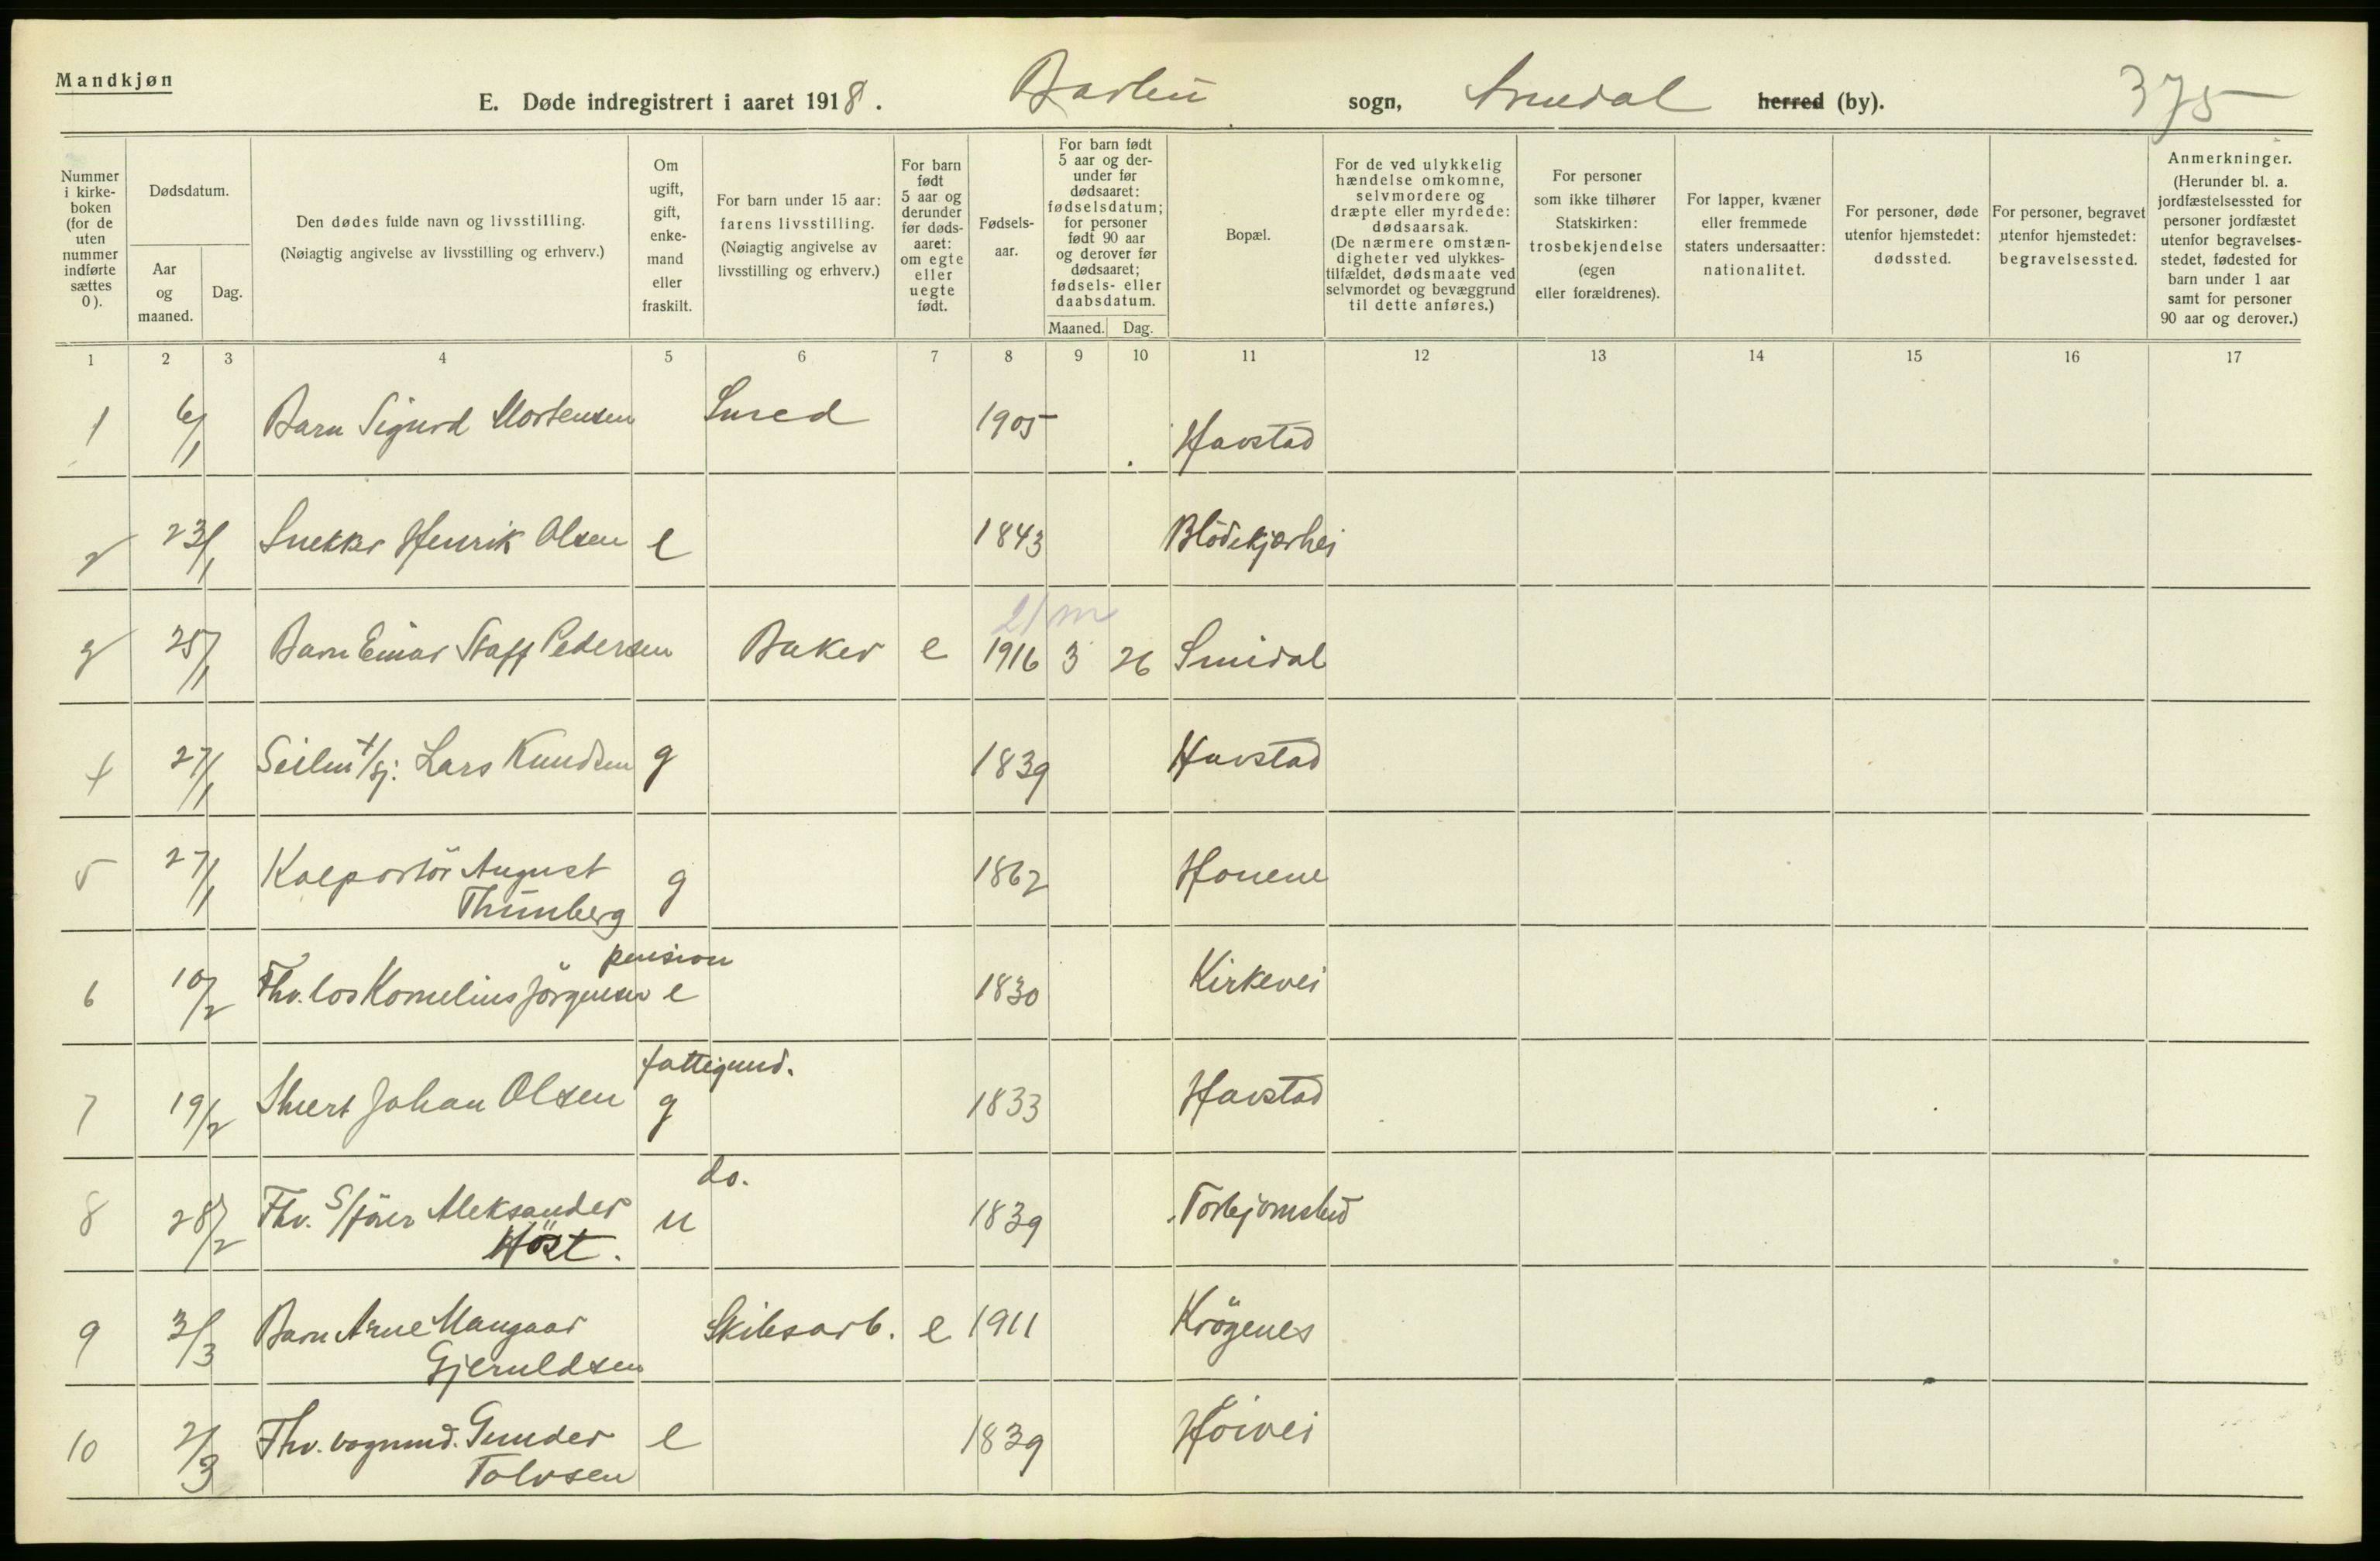 Mandkjøn
E. Døde indregistrert i aaret 1918. Barbu sogn, Arendal herred (by). 375
Nummer i kirkeboken (for de uten nummer indførte sættes 0).
Dødsdatum.
Aar og maaned.
Dag.
Den dødes fulde navn og livsstilling.
(Nøiagtig angivelse av livsstilling og erhverv.)
Om ugift, gift, enkemand eller fraskilt.
For barn under 15 aar: farens livsstilling. (Nøiagtig angivelse av livsstilling og erhverv.)
For barn født 5 aar og derunder før dødsaaret: om egte eller uegte født.
Fødselsaar.
For barn født 5 aar og derunder før dødsaaret: fødselsdatum; for personer født 90 aar og derover før dødsaaret; fødsels- eller daabsdatum.
Maaned. Dag.
Bopæl.
For de ved ulykkelig hændelse omkomne, selvmordere og dræpte eller myrdede: dødsaarsak. (De nærmere omstændigheter ved ulykkestilfældet, dødsmaate ved selvmordet og bevæggrund til dette anføres.)
For personer som ikke tilhører Statskirken: trosbekjendelse (egen eller forældrenes).
For lapper, kvæner eller fremmede staters undersaatter: nationalitet.
For personer, døde utenfor hjemstedet: dødssted.
For personer, begravet utenfor hjemstedet: begravelsessted.
Anmerkninger. (Herunder bl. a. jordfæstelsessted for personer jordfæstet utenfor begravelsesstedet, fødested for barn under 1 aar samt for personer 90 aar og derover.)
1 2 3 4 5 6 7 8 9 10 11 12 13 14 15 16 17
1 6/1 Barn Sigurd Mortensen Smed 1905 Havstad
2 23/1 Snekker Henrik Olsen e 1843 Blödekjærhei
21 m
3 25/1 Barn Einar Staff Pedersen Baker e 1916 3 26 Smidal
4 27/1 Lars Knudsen g 1839 Havstad
5 27/1 Kolportör August g 1862 Honene
Thünberg
pension
6 10/2 Fhv. los Kornelius Jörgensen e 1830 Kirkevei
fattigund.
7 19/2 Johan Olsen g 1833 Havstad
do.
8 28/2 Fhv. S/förer Aleksander u 1839 Torbjørnsbu
Höst.
9 3/3 Barn Arne Mangaar Skibsarb. e 1911 Krögenes
Gjeruldsen
10 2/3 Fhv. vognmd. Gunder e 1839 Höivei
Tolvsen